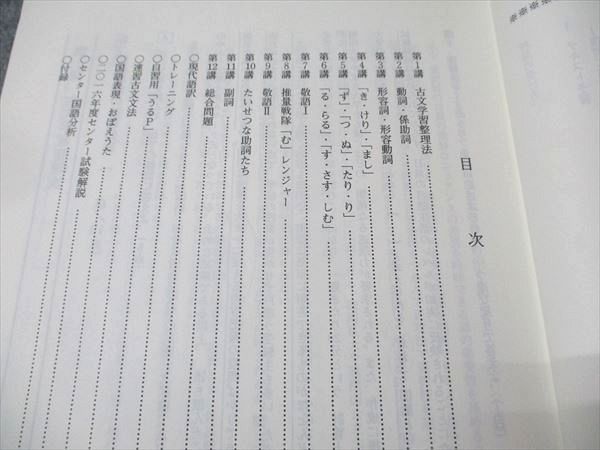 目次
第1講 古文学習整理法
第2講 動詞・係助詞
第3講 形容詞・形容動詞
第4講 「き・けり」「まし」
第5講 「ず」・「つ・ぬ」「たり・り」
第6講 「る・らる」・「す・さす・しむ」
第7講 敬語Ⅰ
第8講 推量戦隊「む」レンジャー
第9講 敬語Ⅱ
第10講 たいせつな助詞たち
第11講 副詞
第12講 総合問題
○現代語訳
○トレーニング
○自習用「うるP」
○速習古文文法
○国語表現・おぼえうた
○二〇一六年度センター試験解説
○センター国語分析
○付録